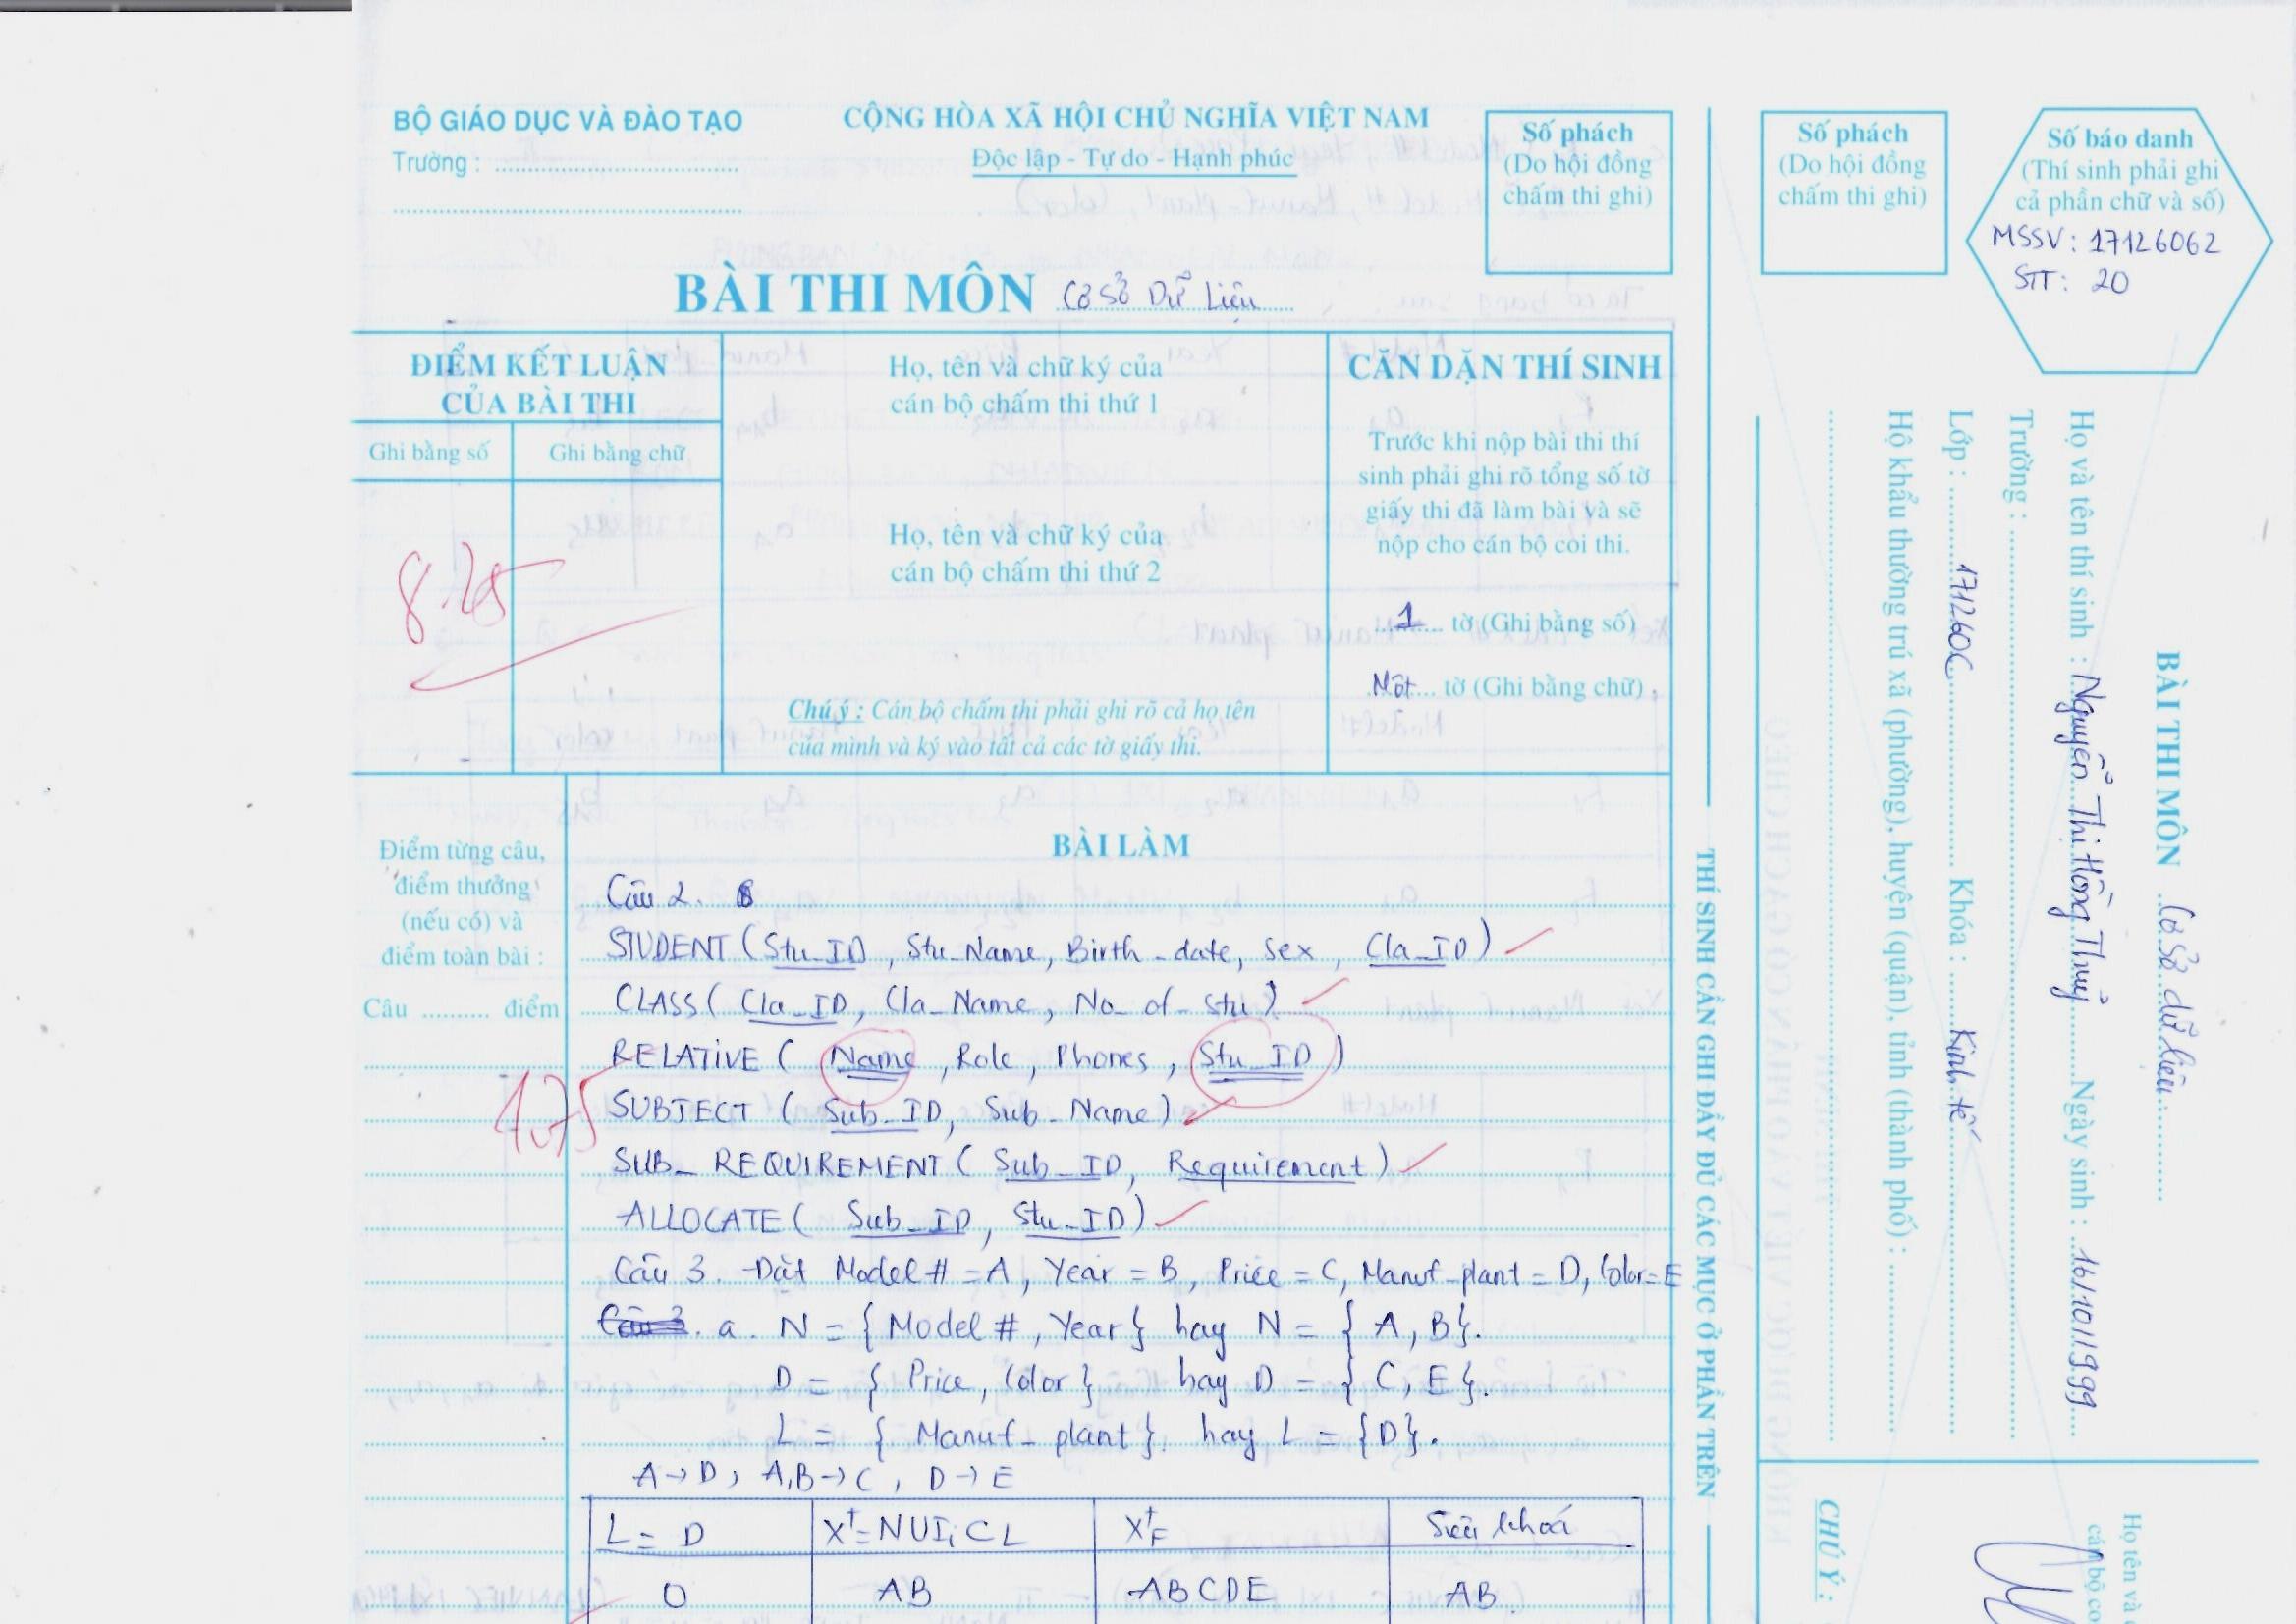 BỘ GIÁO DỤC VÀ ĐÀO TẠO
Trường : ..........
CỘNG HÒA XÃ HỘI CHỦ NGHĨA VIỆT NAM
Độc lập - Tự do - Hạnh phúc
Số phách
(Do hội đồng
chấm thi ghi)
Số phách
(Do hội đồng
chấm thi ghi)
Số báo danh
(Thí sinh phải ghi
cả phần chữ và số)
MSSV: 17126062
STT: 20
BÀI THI MÔN Cơ Sở Dữ Liệu
ĐIỂM KẾT LUẬN
CỦA BÀI THI
Ghi bằng số
Ghi bằng chữ
8.25
Họ, tên và chữ ký của
cán bộ chấm thi thứ 1
Họ, tên và chữ ký của
cán bộ chấm thi thứ 2
Chú ý : Cán bộ chấm thi phải ghi rõ cả họ tên
của mình và ký vào tất cả các tờ giấy thi.
CĂN DẶN THÍ SINH
Trước khi nộp bài thi thí
sinh phải ghi rõ tổng số tờ
giấy thi đã làm bài và sẽ
nộp cho cán bộ coi thi.
1 tờ (Ghi bằng số)
Một tờ (Ghi bằng chữ)
Điểm từng câu,
điểm thưởng
(nếu có) và
điểm toàn bài :
Câu .......... điểm
1,75
BÀI LÀM
Câu 2.
STUDENT (Stu_ID, Stu_Name, Birth_date, sex, Cla_ID)
CLASS (Cla_ID, Cla_Name, No_of_stu)
RELATIVE (Name, Role, Phones, Stu_ID)
SUBJECT (Sub_ID, Sub_Name)
SUB_REQUIREMENT (Sub_ID, Requirement)
ALLOCATE (Sub_ID, Stu_ID)
Câu 3. Đặt Model# = A, Year = B, Price = C, Manuf_plant = D, Color = E
Câu 3. a. N = {Model #, Year} hay N = {A, B}.
D = {Price, Color} hay D = {C, E}.
L = {Manuf_plant}. hay L = {D}.
A → D, A,B → C, D → E
L = D X⁺ = NUI, CL X⁺F Siêu khoá
O AB ABCDE AB
THÍ SINH CẦN GHI ĐẦY ĐỦ CÁC MỤC Ở PHẦN TRÊN
BÀI THI MÔN Cơ Sở dữ liệu
Họ và tên thí sinh : Nguyễn Thị Hồng Thuỷ Ngày sinh : 16/10/1999
Trường : ..........
Lớp : 171260C Khóa : Kinh tế
Hộ khẩu thường trú xã (phường), huyện (quận), tỉnh (thành phố) : ..........
Họ tên và
cán bộ co
CHÚ Ý :